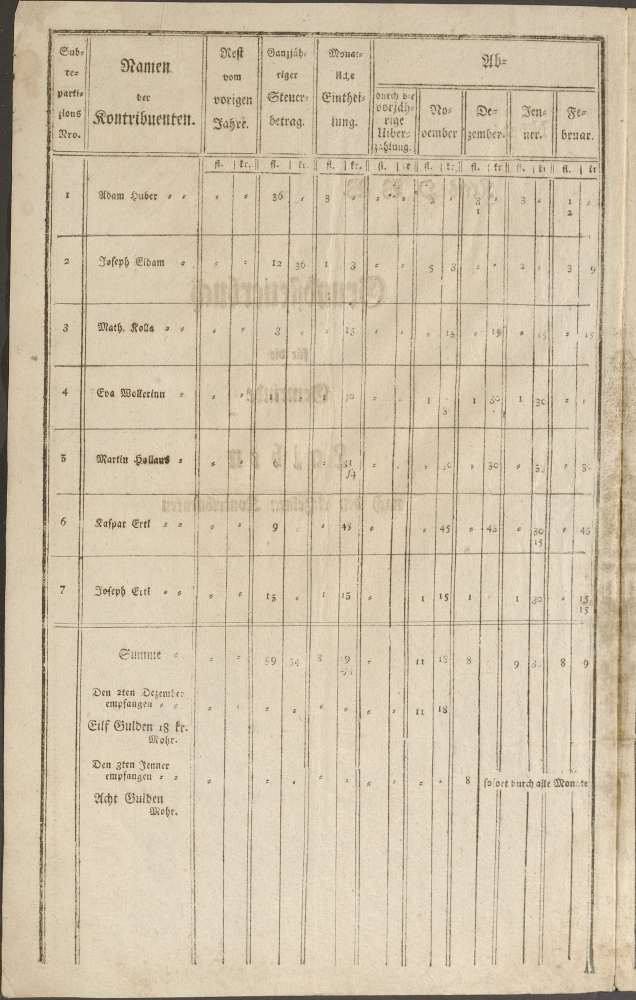 Sub-
re-
parti-
zions
Nro.
Namen
der
Kontribuenten.
Rest
vom
vorigen
Jahre.
Ganzjäh-
riger
Steuer-
betrag.
Monat-
liche
Einthei-
lung.
Ab-
durch die
vorjäh-
rige
Uiber-
zahlung.
No-
vember
De-
zember.
Jen-
ner.
Fe-
bruar.
fl. kr. fl. kr. fl. kr. fl. fl. kr. fl. kr. fl. kr. fl. kr
1 Adam Huber 36 3 3 1 2
2 Joseph Eidam 12 36 1 3 5 3 3 9
3 Math. Kolla 3 15 15 15 15 15
4 Eva Wollerinn 1 1 30 1 30
5 Martin Hollaus 30 30
6 Kaspar Ertl 9 45 45 45 30 45
15
7 Joseph Ertl 15 1 15 1 15 1 1 30 15
15
Summe 99 54 8 11 18 8 9 8 9
Den 2ten Dezember
empfangen 11 18
Eilf Gulden 18 kr.
Mohr.
Den 3ten Jenner
empfangen 8 sofort durch alle Monate
Acht Gulden
Mohr.